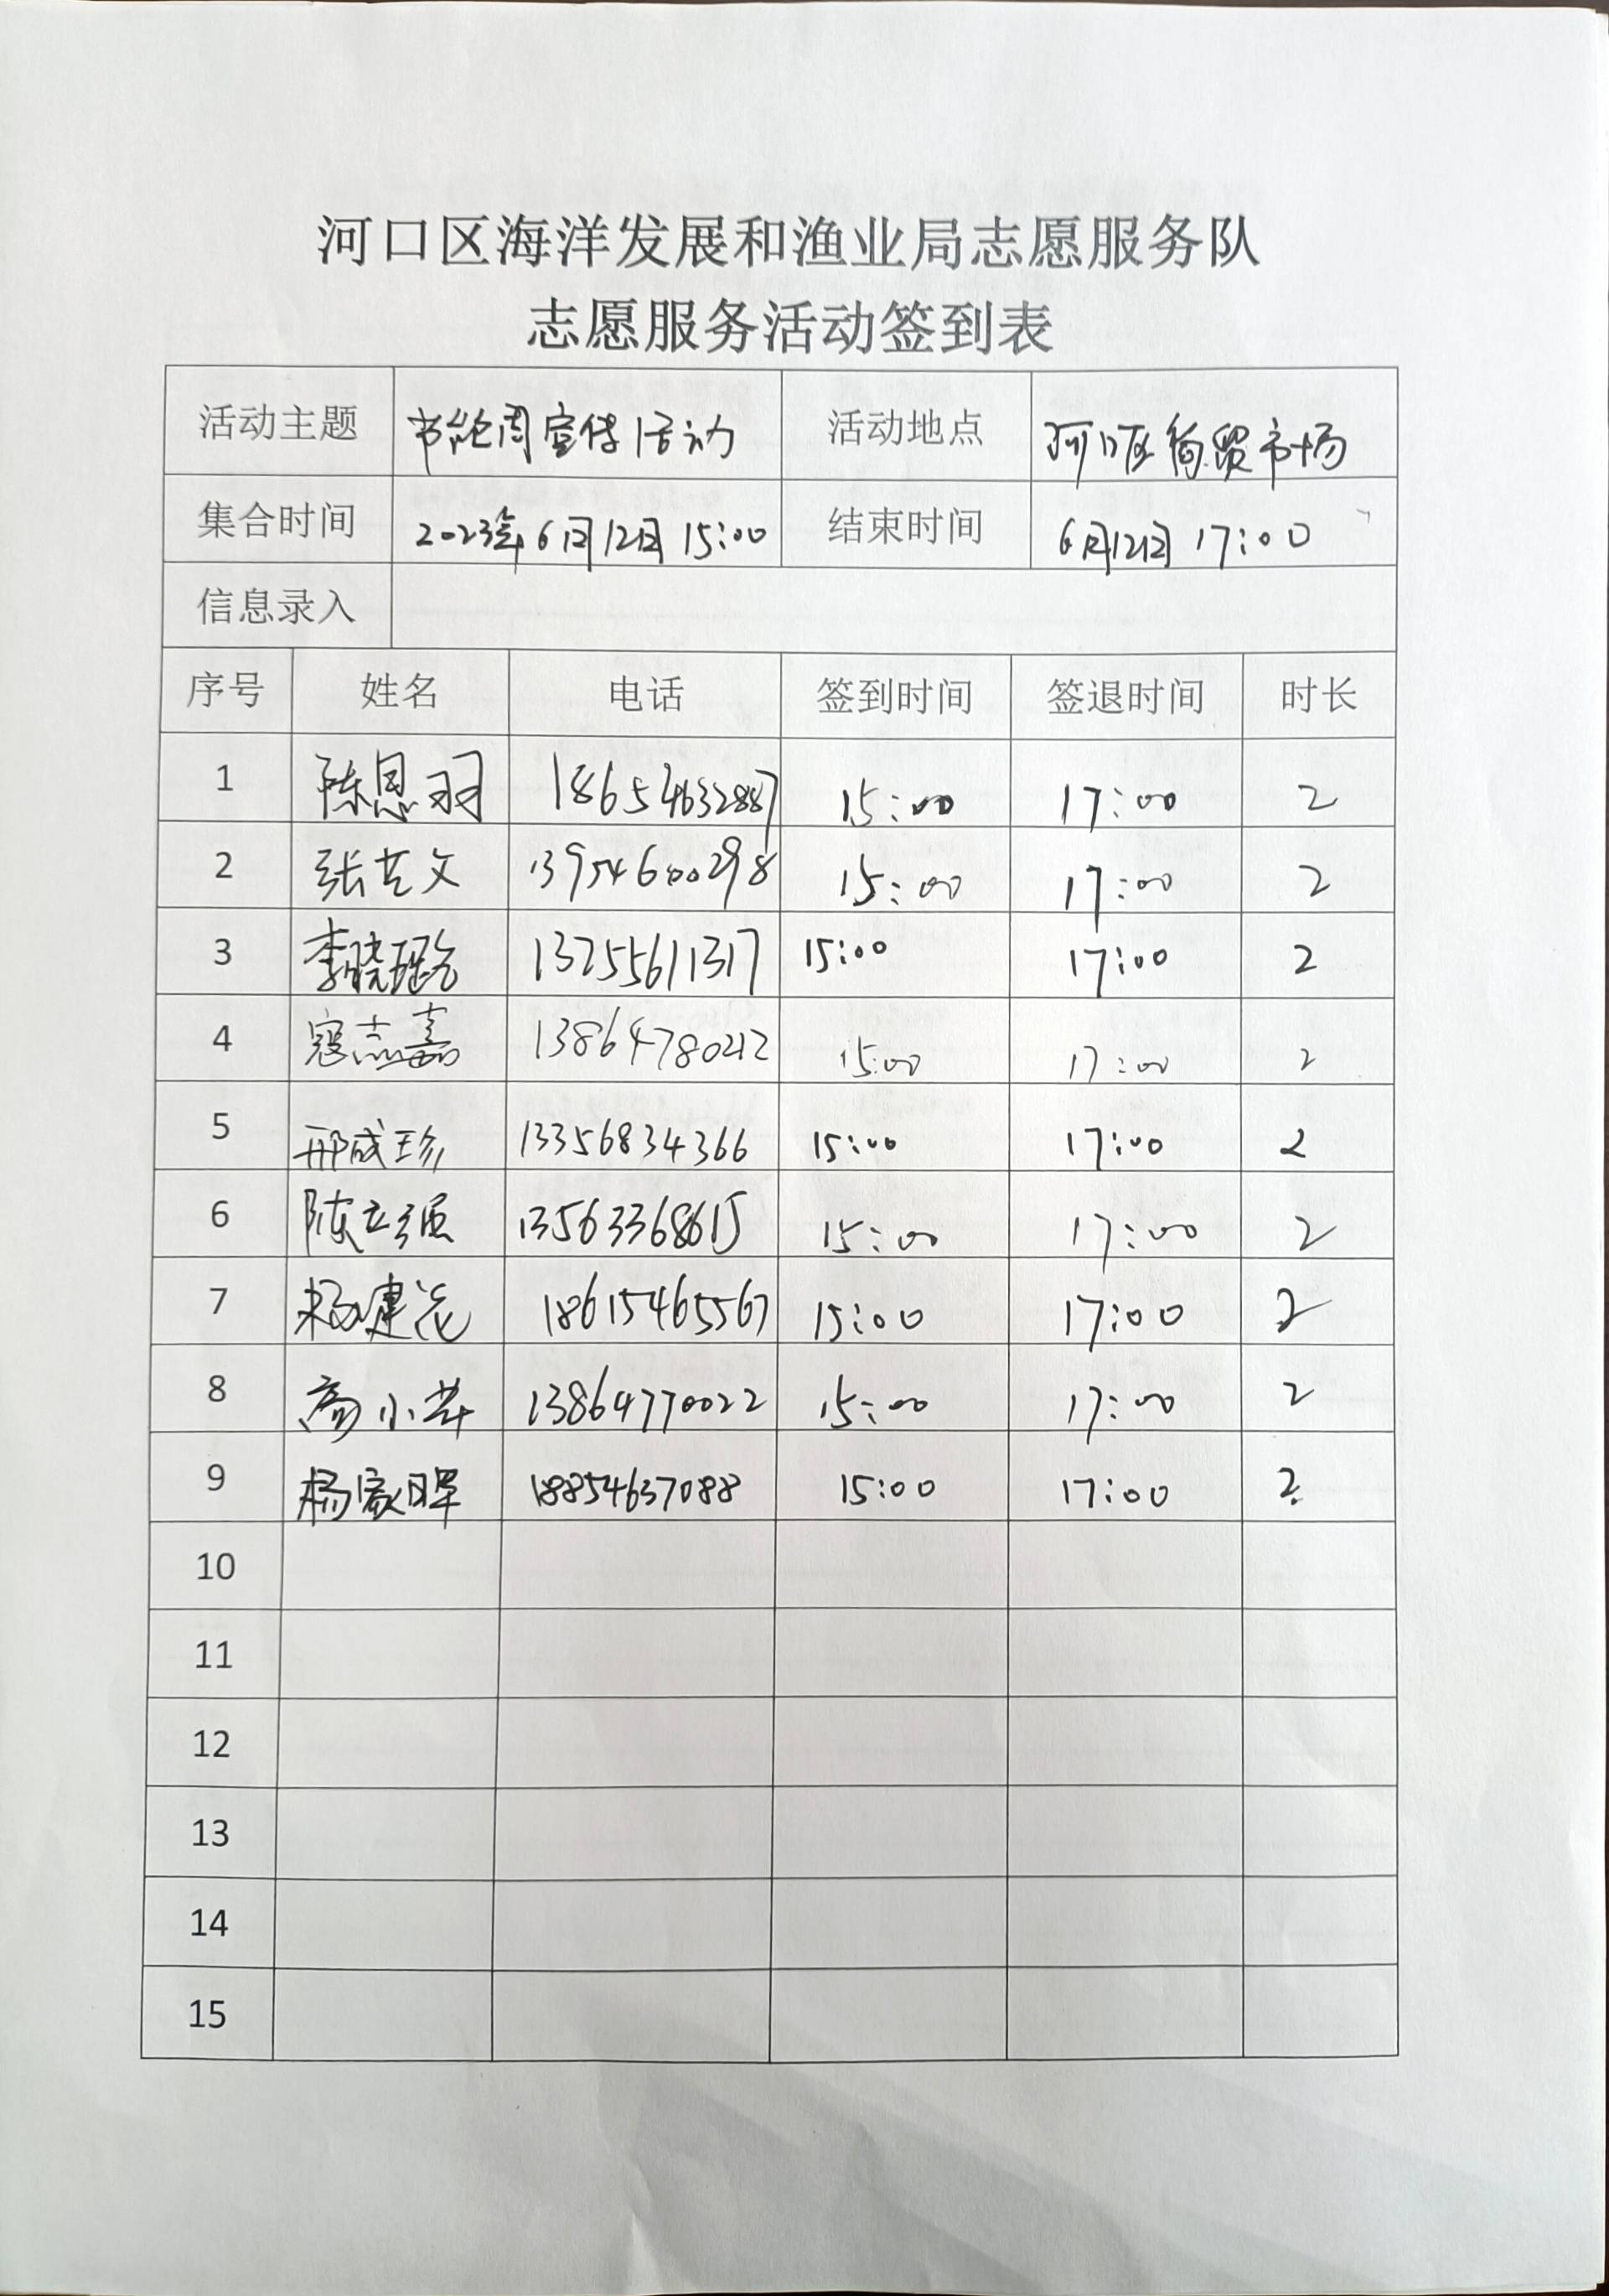 河口区海洋发展和渔业局志愿服务队
志愿服务活动签到表
活动主题 节能周宣传活动 活动地点 河口区商贸市场
集合时间 2023年6月12日 15:00 结束时间 6月12日 17:00
信息录入
序号 姓名 电话 签到时间 签退时间 时长
1 陈恩羽 18654632887 15:00 17:00 2
2 张艺文 13954600298 15:00 17:00 2
3 李晓瑶 13255611317 15:00 17:00 2
4 寇志嘉 13864780212 15:00 17:00 2
5 邢成珍 13356834366 15:00 17:00 2
6 陈立强 13563368615 15:00 17:00 2
7 杨建花 18615465567 15:00 17:00 2
8 高小苹 13864770022 15:00 17:00 2
9 杨家晖 18854637088 15:00 17:00 2
10
11
12
13
14
15